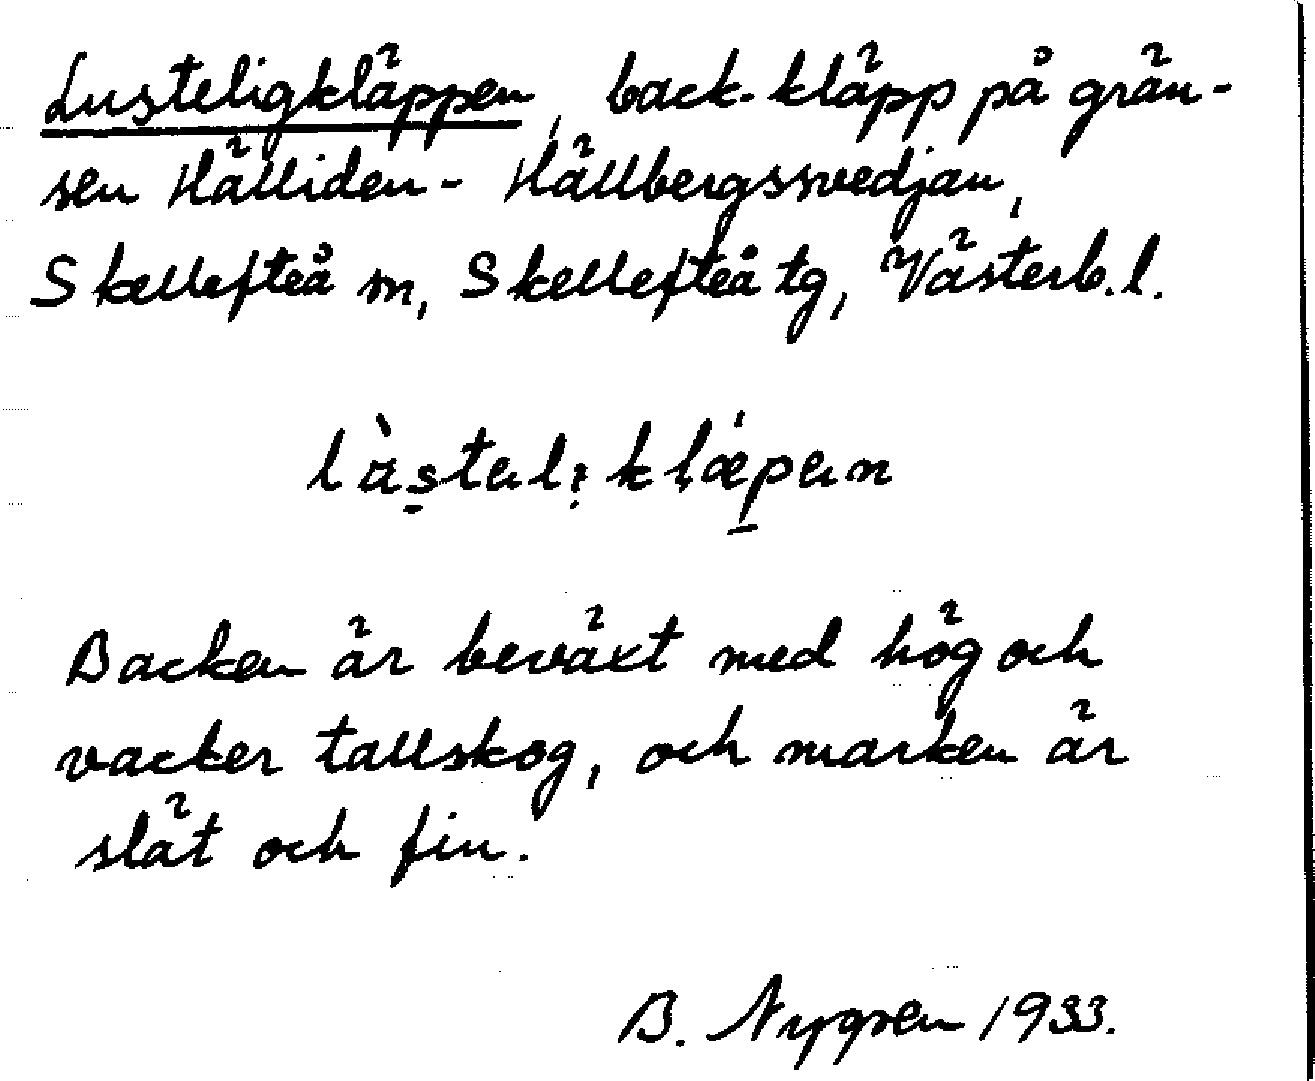 Lusteligkläppen, back-kläpp på grän-
sen Hälliden - Hällbergssvedjan,
Skellefteå m, Skellefteå tg, Västerb.l.
Backen är beväxt med hög och
vacker tallskog, och marken är
slät och fin.
B. Nygren 1933.